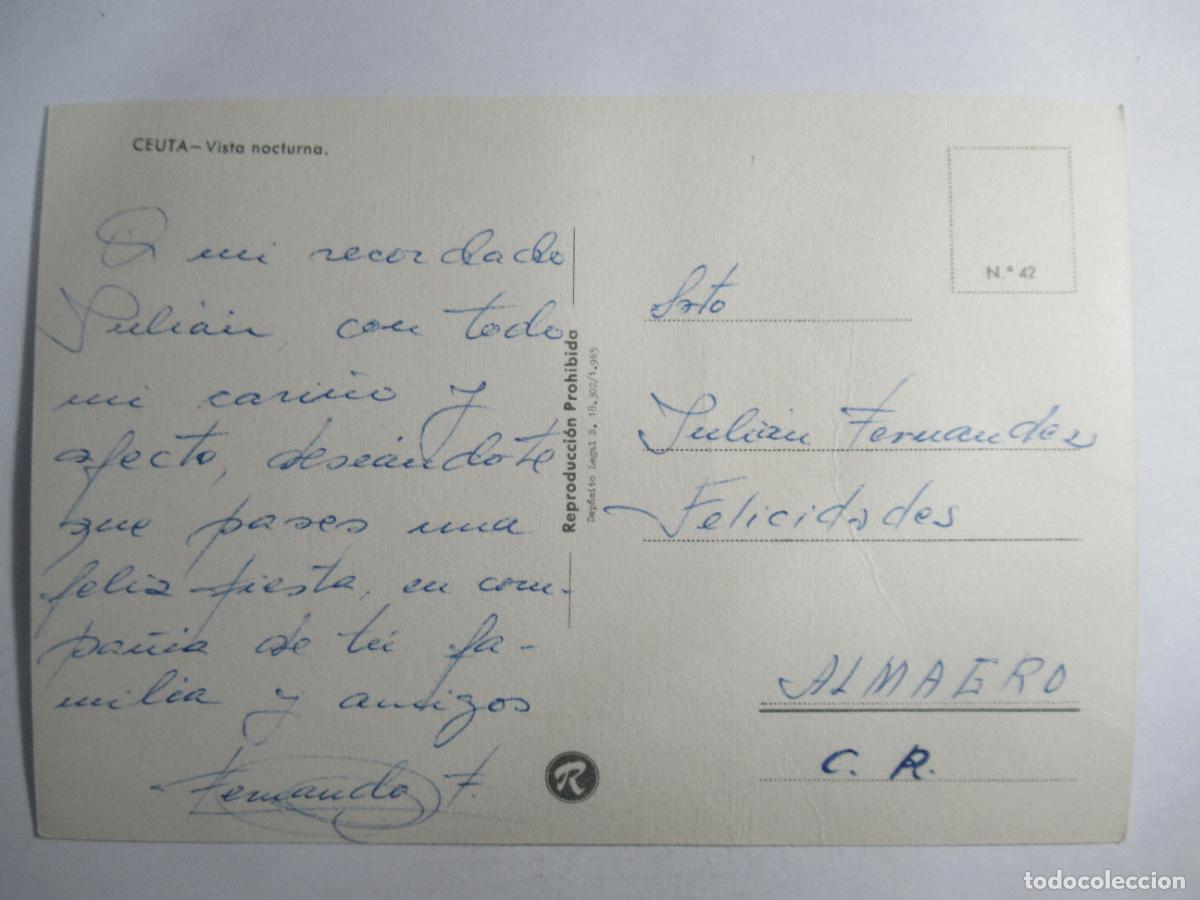 CEUTA – Vista nocturna.
A mi recordado
Julián, con todo
mi cariño y
afecto, deseándote
que pases una
feliz fiesta, en com-
pañia de tú fa-
milia y amigos
Fernando F.
Reproducción Prohibida
Depósito Legal B. 18.302/1.965
R
N.º 42
Srto
Julián Fernandez
Felicidades
ALMAGRO
C. R.
todocoleccion